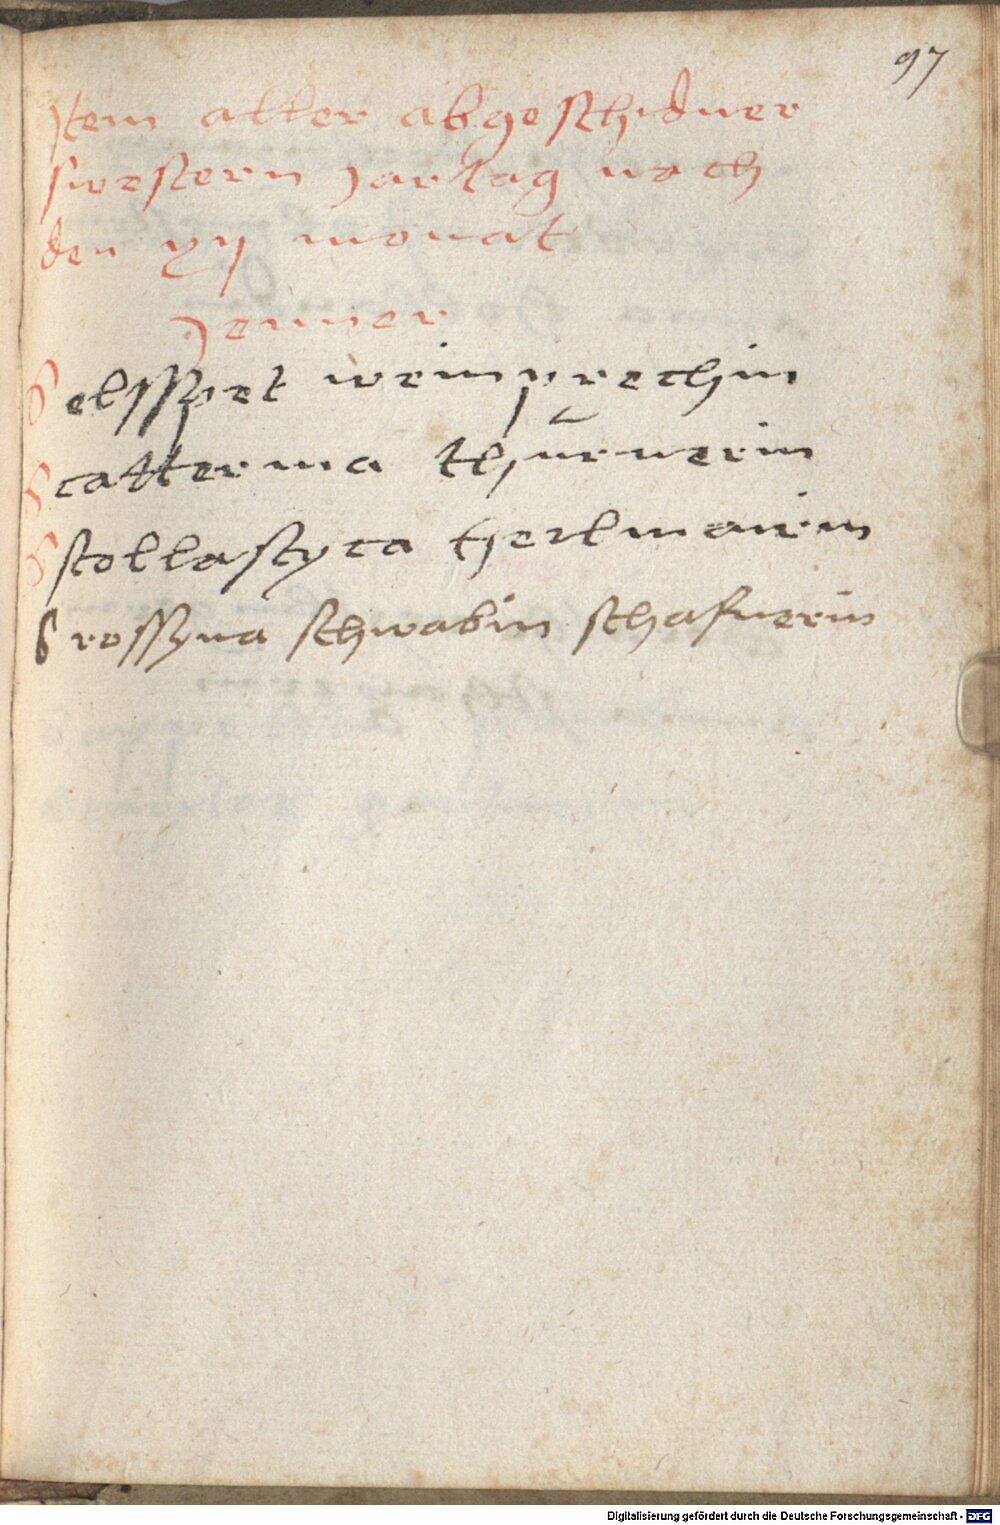 97
Jtem aller abgeschidner
swestern Jartag nach
den xij monat
Jenner
S elsspet weinprechin
S catterina thurnerin
S scollastyca herlmairin
S rossyna schwabin schafnerin
Digitalisierung gefördert durch die Deutsche Forschungsgemeinschaft - DFG